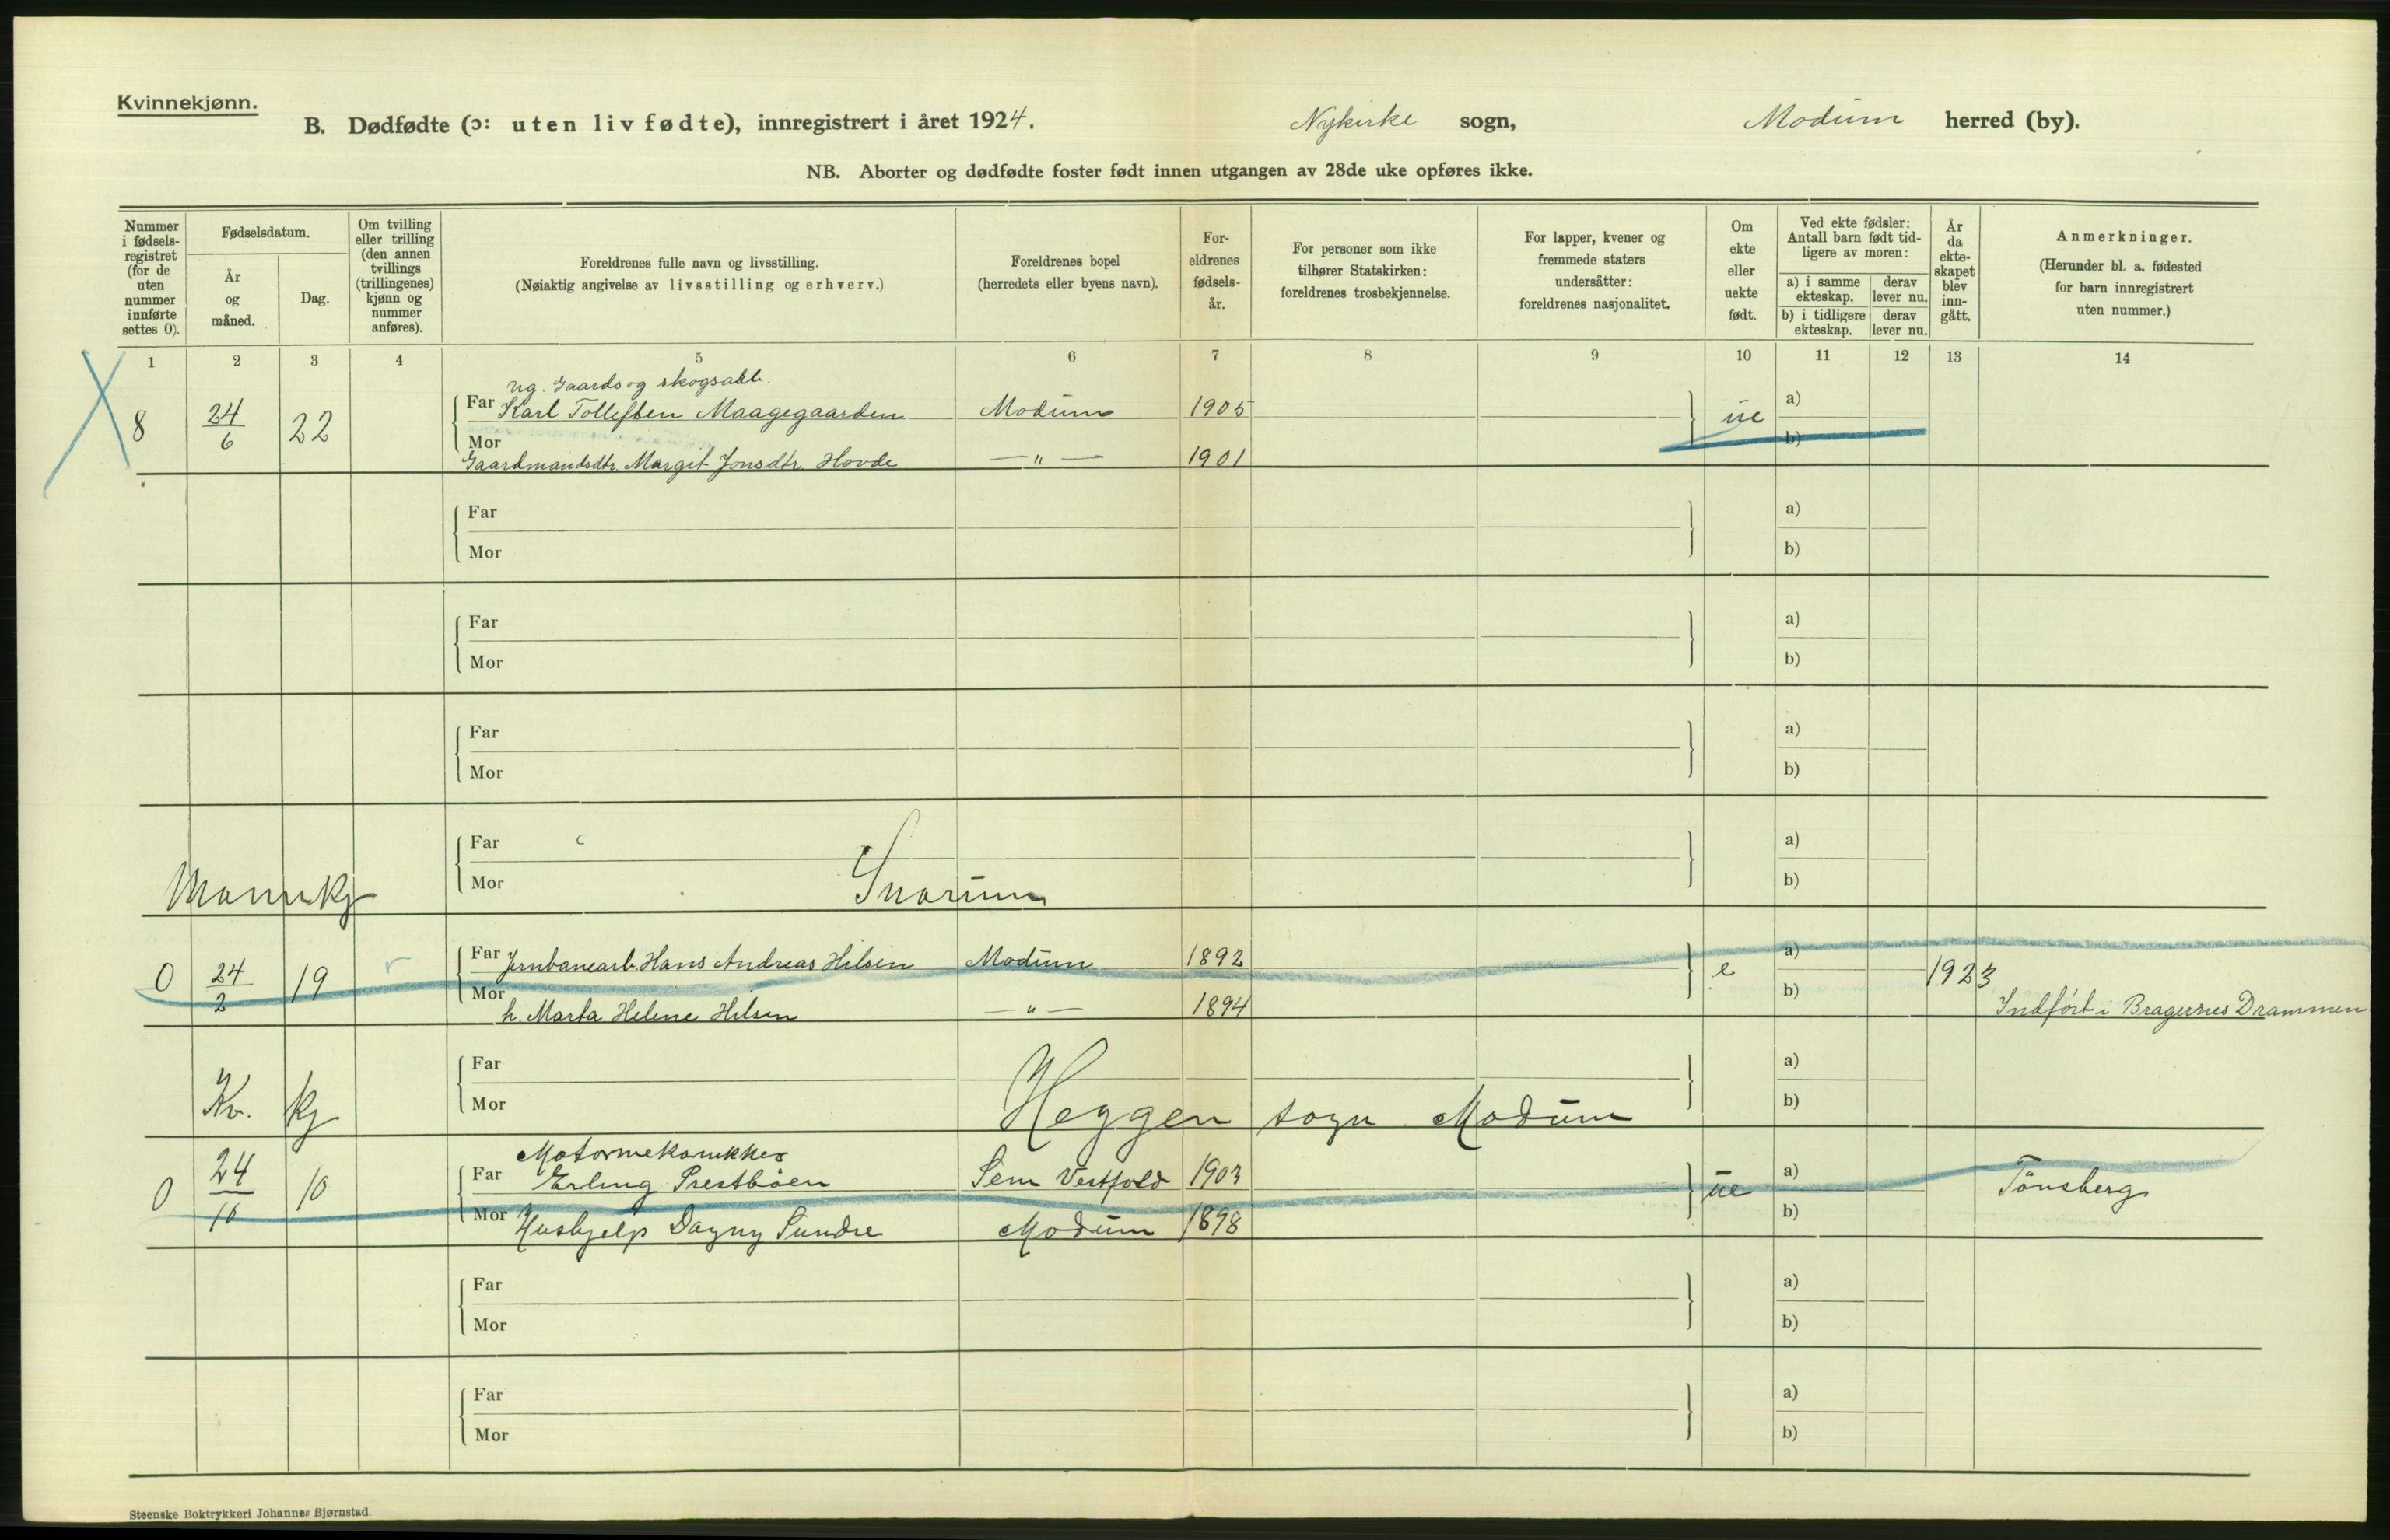 Kvinnekjønn.
B. Dødfødte (ɔ: uten liv fødte), innregistrert i året 1924. Nykirke sogn, Modum herred (by).
NB. Aborter og dødfødte foster født innen utgangen av 28de uke opføres ikke.
Nummer i fødsels-registret (for de uten nummer innførte settes 0).
Fødselsdatum.
År og måned.
Dag.
Om tvilling eller trilling (den annen tvillings (trillingenes) kjønn og nummer anføres).
Foreldrenes fulle navn og livsstilling.
(Nøiaktig angivelse av livsstilling og erhverv.)
Foreldrenes bopel
(herredets eller byens navn).
For-eldrenes fødsels-år.
For personer som ikke tilhører Statskirken: foreldrenes trosbekjennelse.
For lapper, kvener og fremmede staters undersåtter: foreldrenes nasjonalitet.
Om ekte eller uekte født.
Ved ekte fødsler: Antall barn født tid-ligere av moren:
a) i samme ekteskap. derav lever nu.
b) i tidligere ekteskap. derav lever nu.
År da ekte-skapet blev inn-gått.
Anmerkninger.
(Herunder bl. a. fødested for barn innregistrert uten nummer.)
1 2 3 4 5 6 7 8 9 10 11 12 13 14
ug. Gaards og skogsarb.
8 24/6 22 Far Karl Tollefsen Maagegaarden Modum 1905 ue a)
Mor b)
Gaardmandsdtr. Margit Jonsdtr. Hovde — " — 1901
Far a)
Mor b)
Far a)
Mor b)
Far a)
Mor b)
Far a)
Mor b)
Mannkj Snarum
0 24/2 19 Far Jernbanearb. Hans Andreas Hilsen Modum 1892 e a) 1923
Mor b)
h. Marta Helene Hilsen — " — 1894 Indført i Bragernes Drammen
Far a)
Mor b)
Kv. kj Heggen sogn Modum
Motormekanikker
0 24/10 10 Far Erling Prestbøen Sem Vestfold 1903 ue a) Tönsberg
Mor Hushjelp Dagny Sundre Modum 1898 b)
Far a)
Mor b)
Far a)
Mor b)
Steenske Boktrykkeri Johannes Bjørnstad.